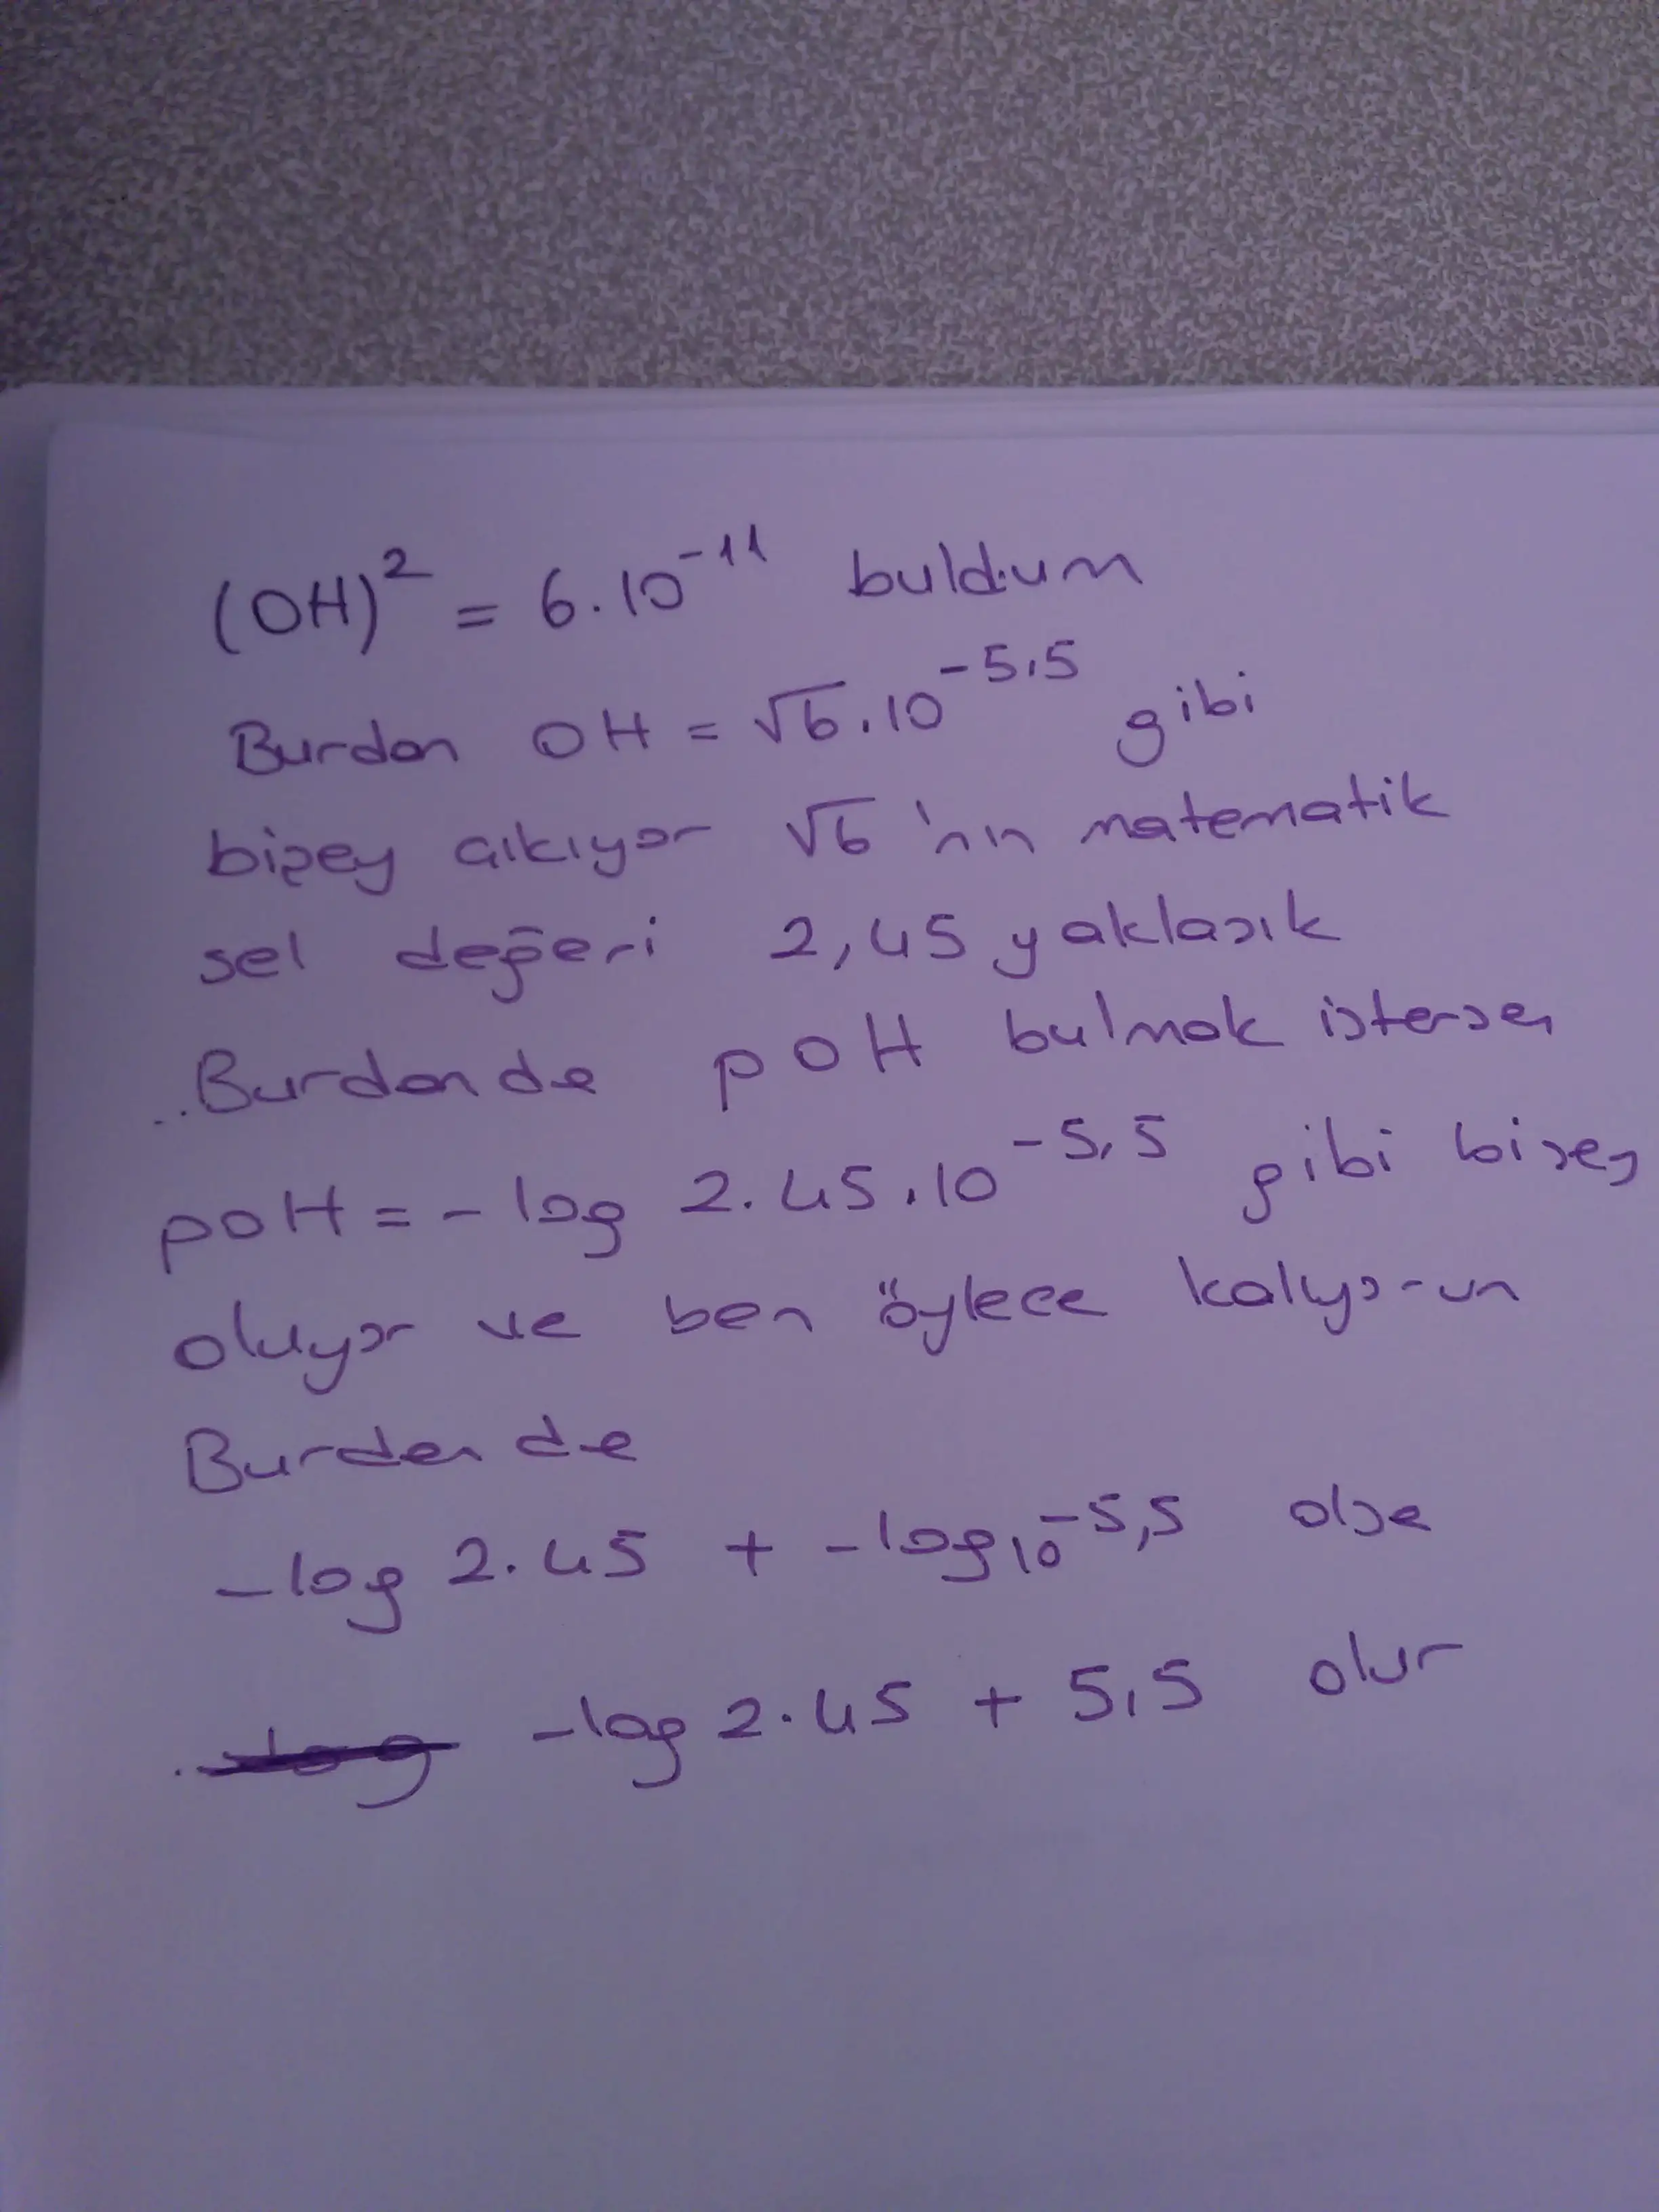 (OH)² = 6.10⁻¹¹ buldum
Burdan OH = √6.10⁻⁵,⁵ gibi
bişey çıkıyor √6'nın matematik
sel değeri 2,45 yaklaşık
Burdan de pOH bulmak istersen
pOH = - log 2.45.10⁻⁵,⁵ gibi bişey
oluyor ve ben öylece kalıyorum
Burdan de
-log 2.45 + -log10⁻⁵,⁵ olse
-log 2.45 + 5,5 olur